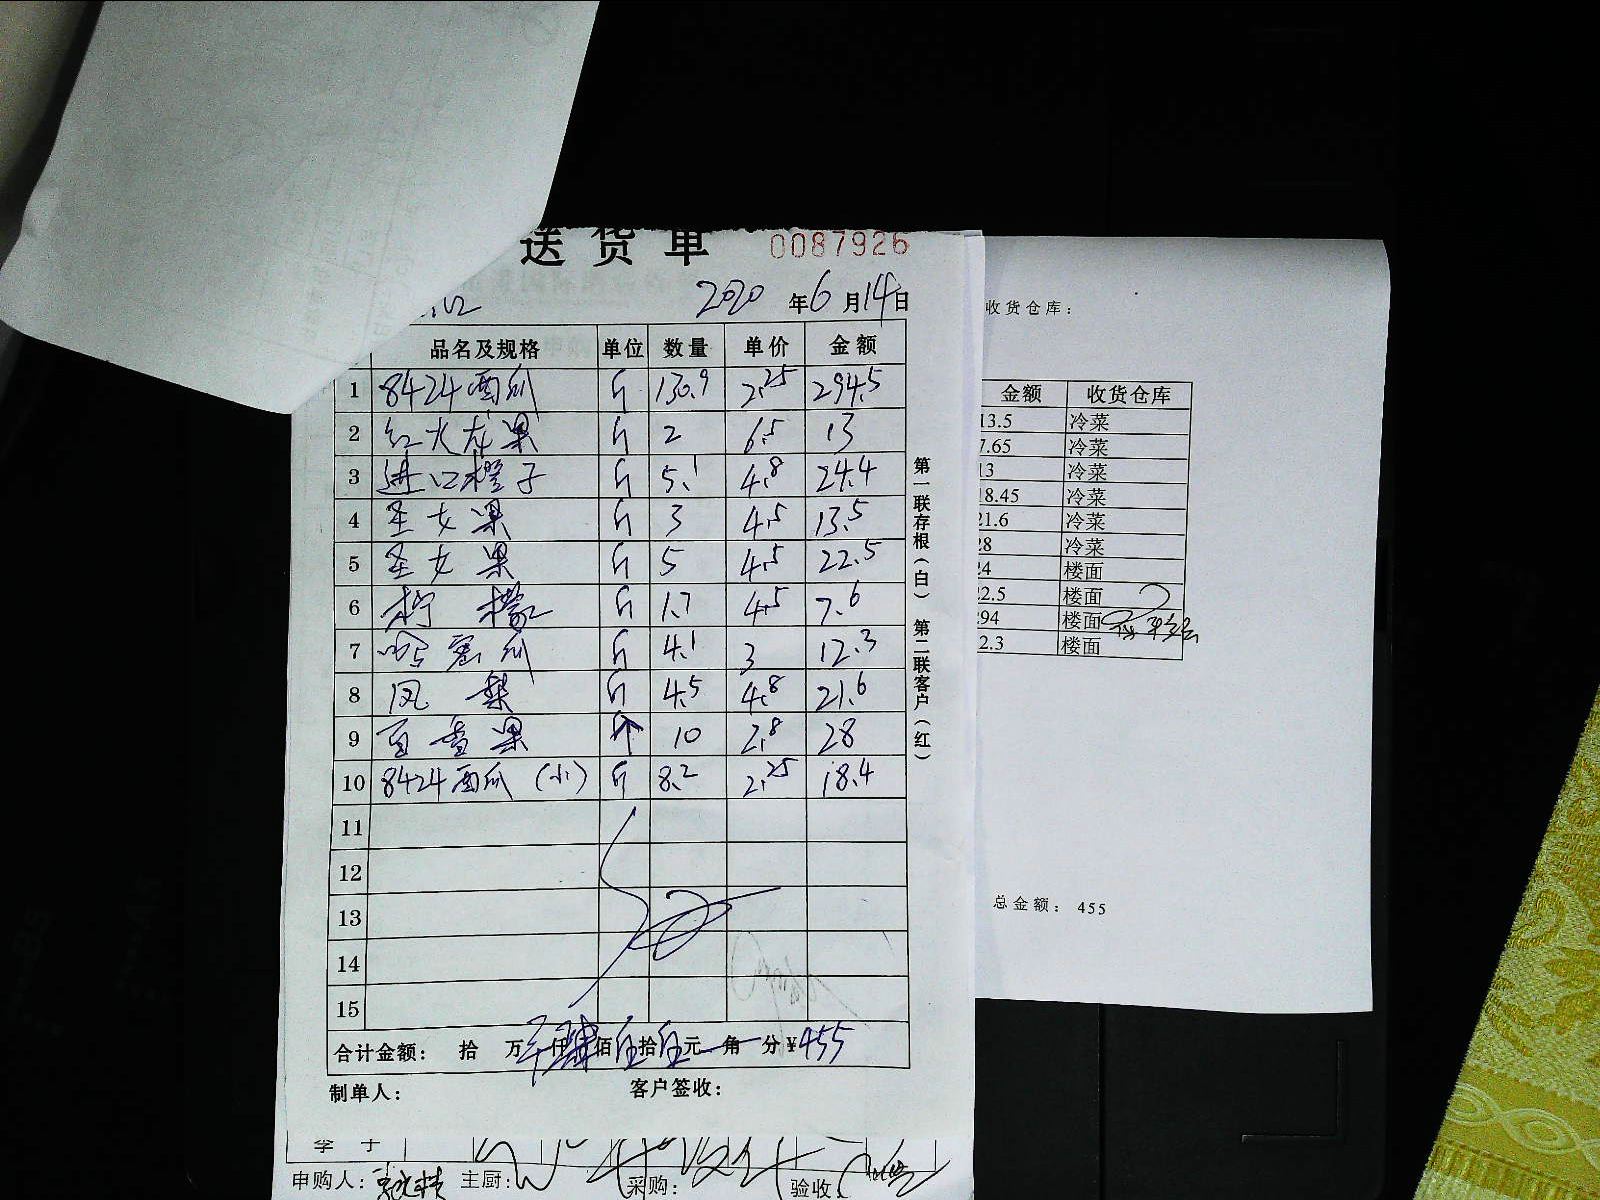 送货单 0087926
2020 年 6 月 14 日
品名及规格 单位 数量 单价 金额
1 8424西瓜 斤 130.9 2.25 294.5
2 红火龙果 斤 2 6.5 13
3 进口橙子 斤 5.1 4.8 24.4
4 圣女果 斤 3 4.5 13.5
5 圣女果 斤 5 4.5 22.5
6 柠檬 斤 1.7 4.5 7.6
7 哈密瓜 斤 4.1 3 12.3
8 凤梨 斤 4.5 4.8 21.6
9 百香果 个 10 2.8 28
10 8424西瓜(小) 斤 8.2 2.25 18.4
11
12
13
14
15
合计金额: 拾 万 仟肆佰伍拾伍元 角 分¥455
制单人: 客户签收:
第一联存根(白) 第二联客户(红)
李子
申购人: 主厨: 采购: 验收:
收货仓库:
金额 收货仓库
13.5 冷菜
7.65 冷菜
13 冷菜
18.45 冷菜
21.6 冷菜
28 冷菜
24 楼面
22.5 楼面
294 楼面
2.3 楼面
总金额: 455